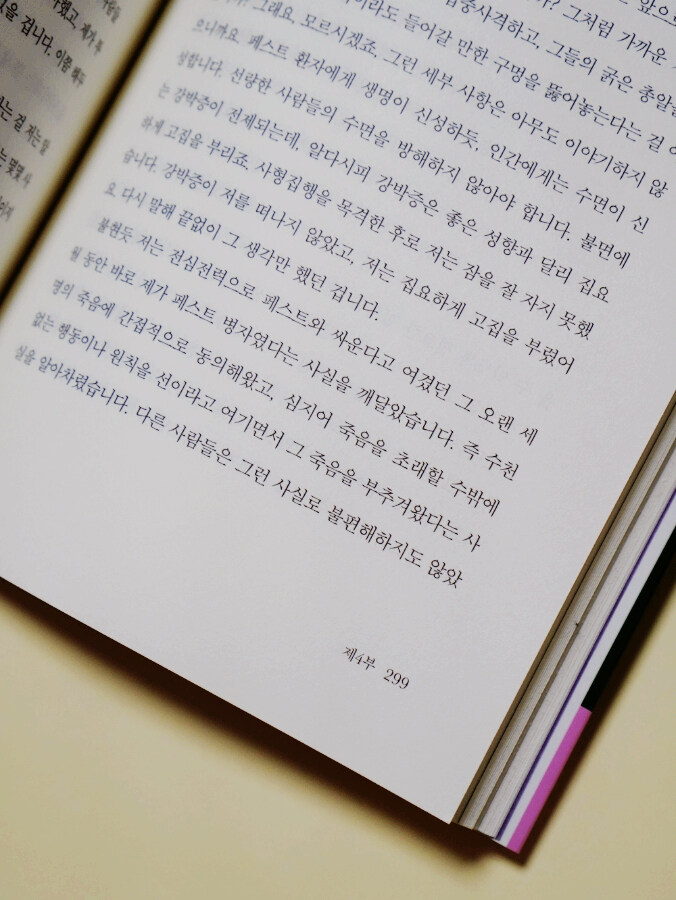 했고, 제가 투
을 겁니다. 이쯤 해두
는 걸 저는 알
는 몇몇 사
앞으로
집중사격하고, 그들의 굵은 총알들
이라도 들어갈 만한 구멍을 뚫어놓는다는 걸
그래요, 모르시겠죠. 그런 세부 사항은 아무도 이야기하지 않
으니까요. 페스트 환자에게 생명이 신성하듯, 인간에게는 수면이 신
성합니다. 선량한 사람들의 수면을 방해하지 않아야 합니다. 불면에
는 강박증이 전제되는데, 알다시피 강박증은 좋은 성향과 달리 집요
하게 고집을 부리죠. 사형집행을 목격한 후로 저는 잠을 잘 자지 못했
습니다. 강박증이 저를 떠나지 않았고, 저는 집요하게 고집을 부렸어
요. 다시 말해 끝없이 그 생각만 했던 겁니다.
불현듯 저는 전심전력으로 페스트와 싸운다고 여겼던 그 오랜 세
월 동안 바로 제가 페스트 병자였다는 사실을 깨달았습니다. 즉 수천
명의 죽음에 간접적으로 동의해왔고, 심지어 죽음을 초래할 수밖에
없는 행동이나 원칙을 선이라고 여기면서 그 죽음을 부추겨왔다는 사
실을 알아차렸습니다. 다른 사람들은 그런 사실로 불편해하지도 않았
제4부 299